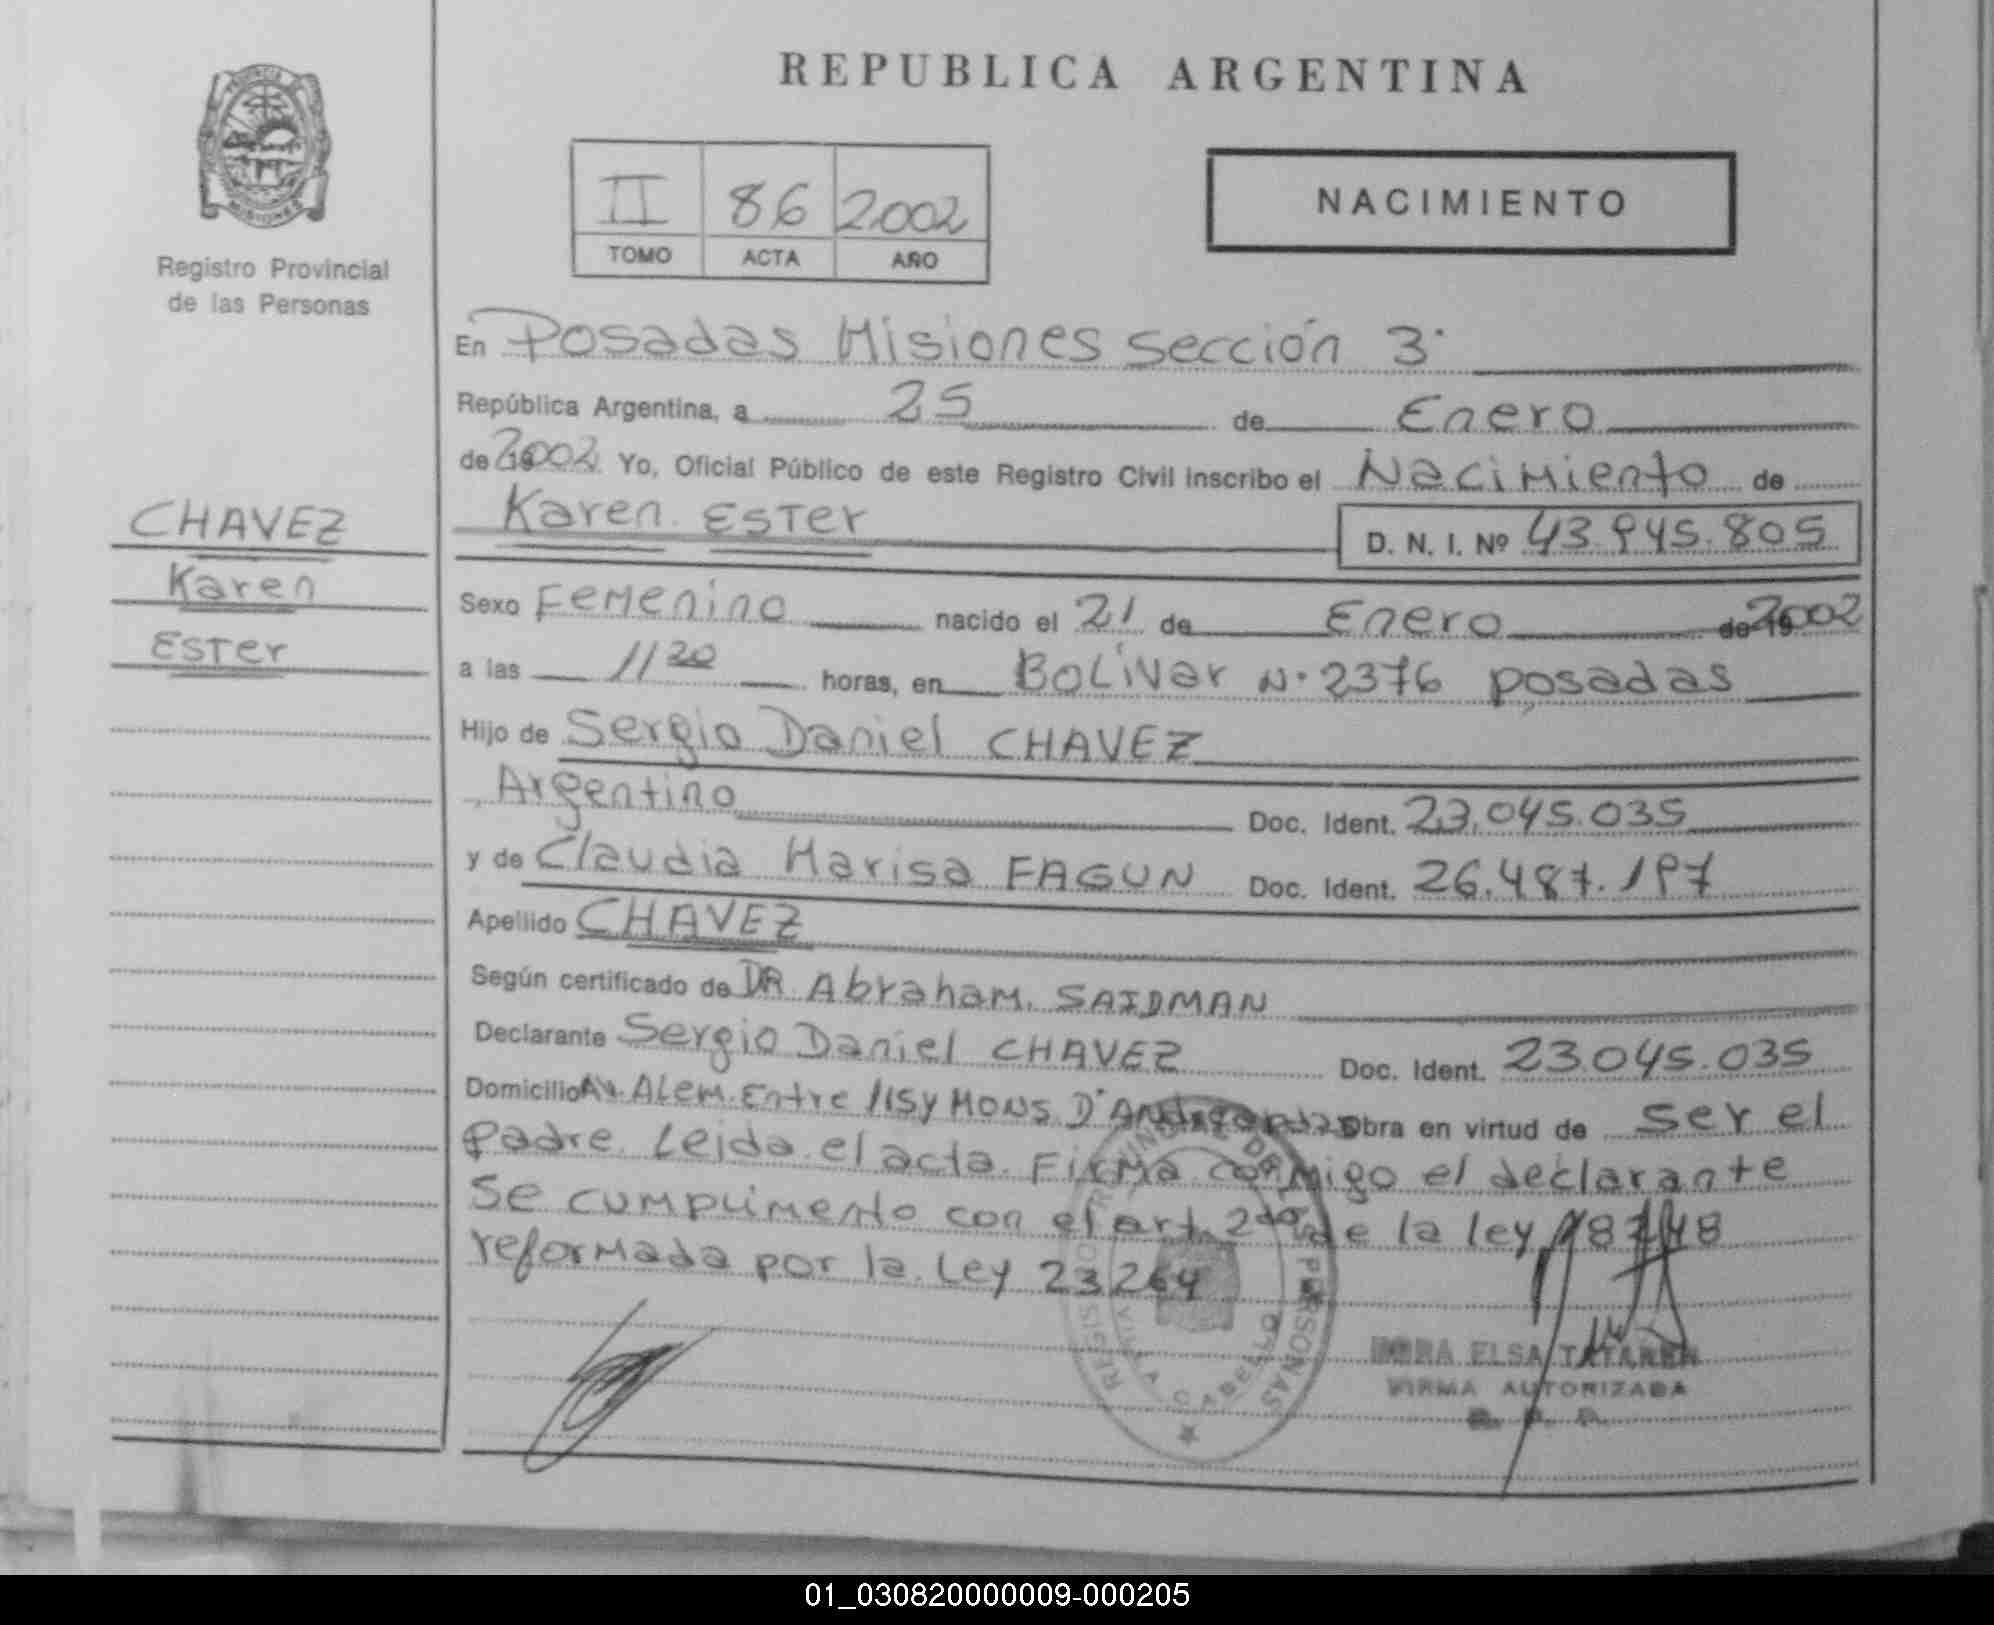 REPUBLICA ARGENTINA
PROVINCIA DE
MISIONES
Registro Provincial
de las Personas
II 86 2002
TOMO ACTA AÑO
NACIMIENTO
CHAVEZ
Karen
Ester
En Posadas Misiones sección 3
República Argentina, a 25 de Enero
de 2002 Yo, Oficial Público de este Registro Civil inscribo el Nacimiento de
Karen Ester D. N. I. Nº 43.945.805
Sexo Femenino nacido el 21 de Enero de 2002
a las 11 20 horas, en Bolivar N. 2376 posadas
Hijo de Sergio Daniel CHAVEZ
Argentino Doc. Ident. 23.045.035
y de Claudia Marisa FAGUN Doc. Ident. 26.487.197
Apellido CHAVEZ
Según certificado de DR. Abraham. SAIDMAN
Declarante Sergio Daniel CHAVEZ Doc. Ident. 23.045.035
Domicilio Av. ALEM. Entre 115 y MONS. D' Obra en virtud de ser el
padre. Leida el acta. Firma conmigo el declarante
se cumplimento con el art. 2do de la ley 18248
reformada por la Ley 23264
REGISTRO PROVINCIAL DE LAS PERSONAS
CABECERA
ELSA TATAREN
FIRMA AUTORIZADA
01_030820000009-000205